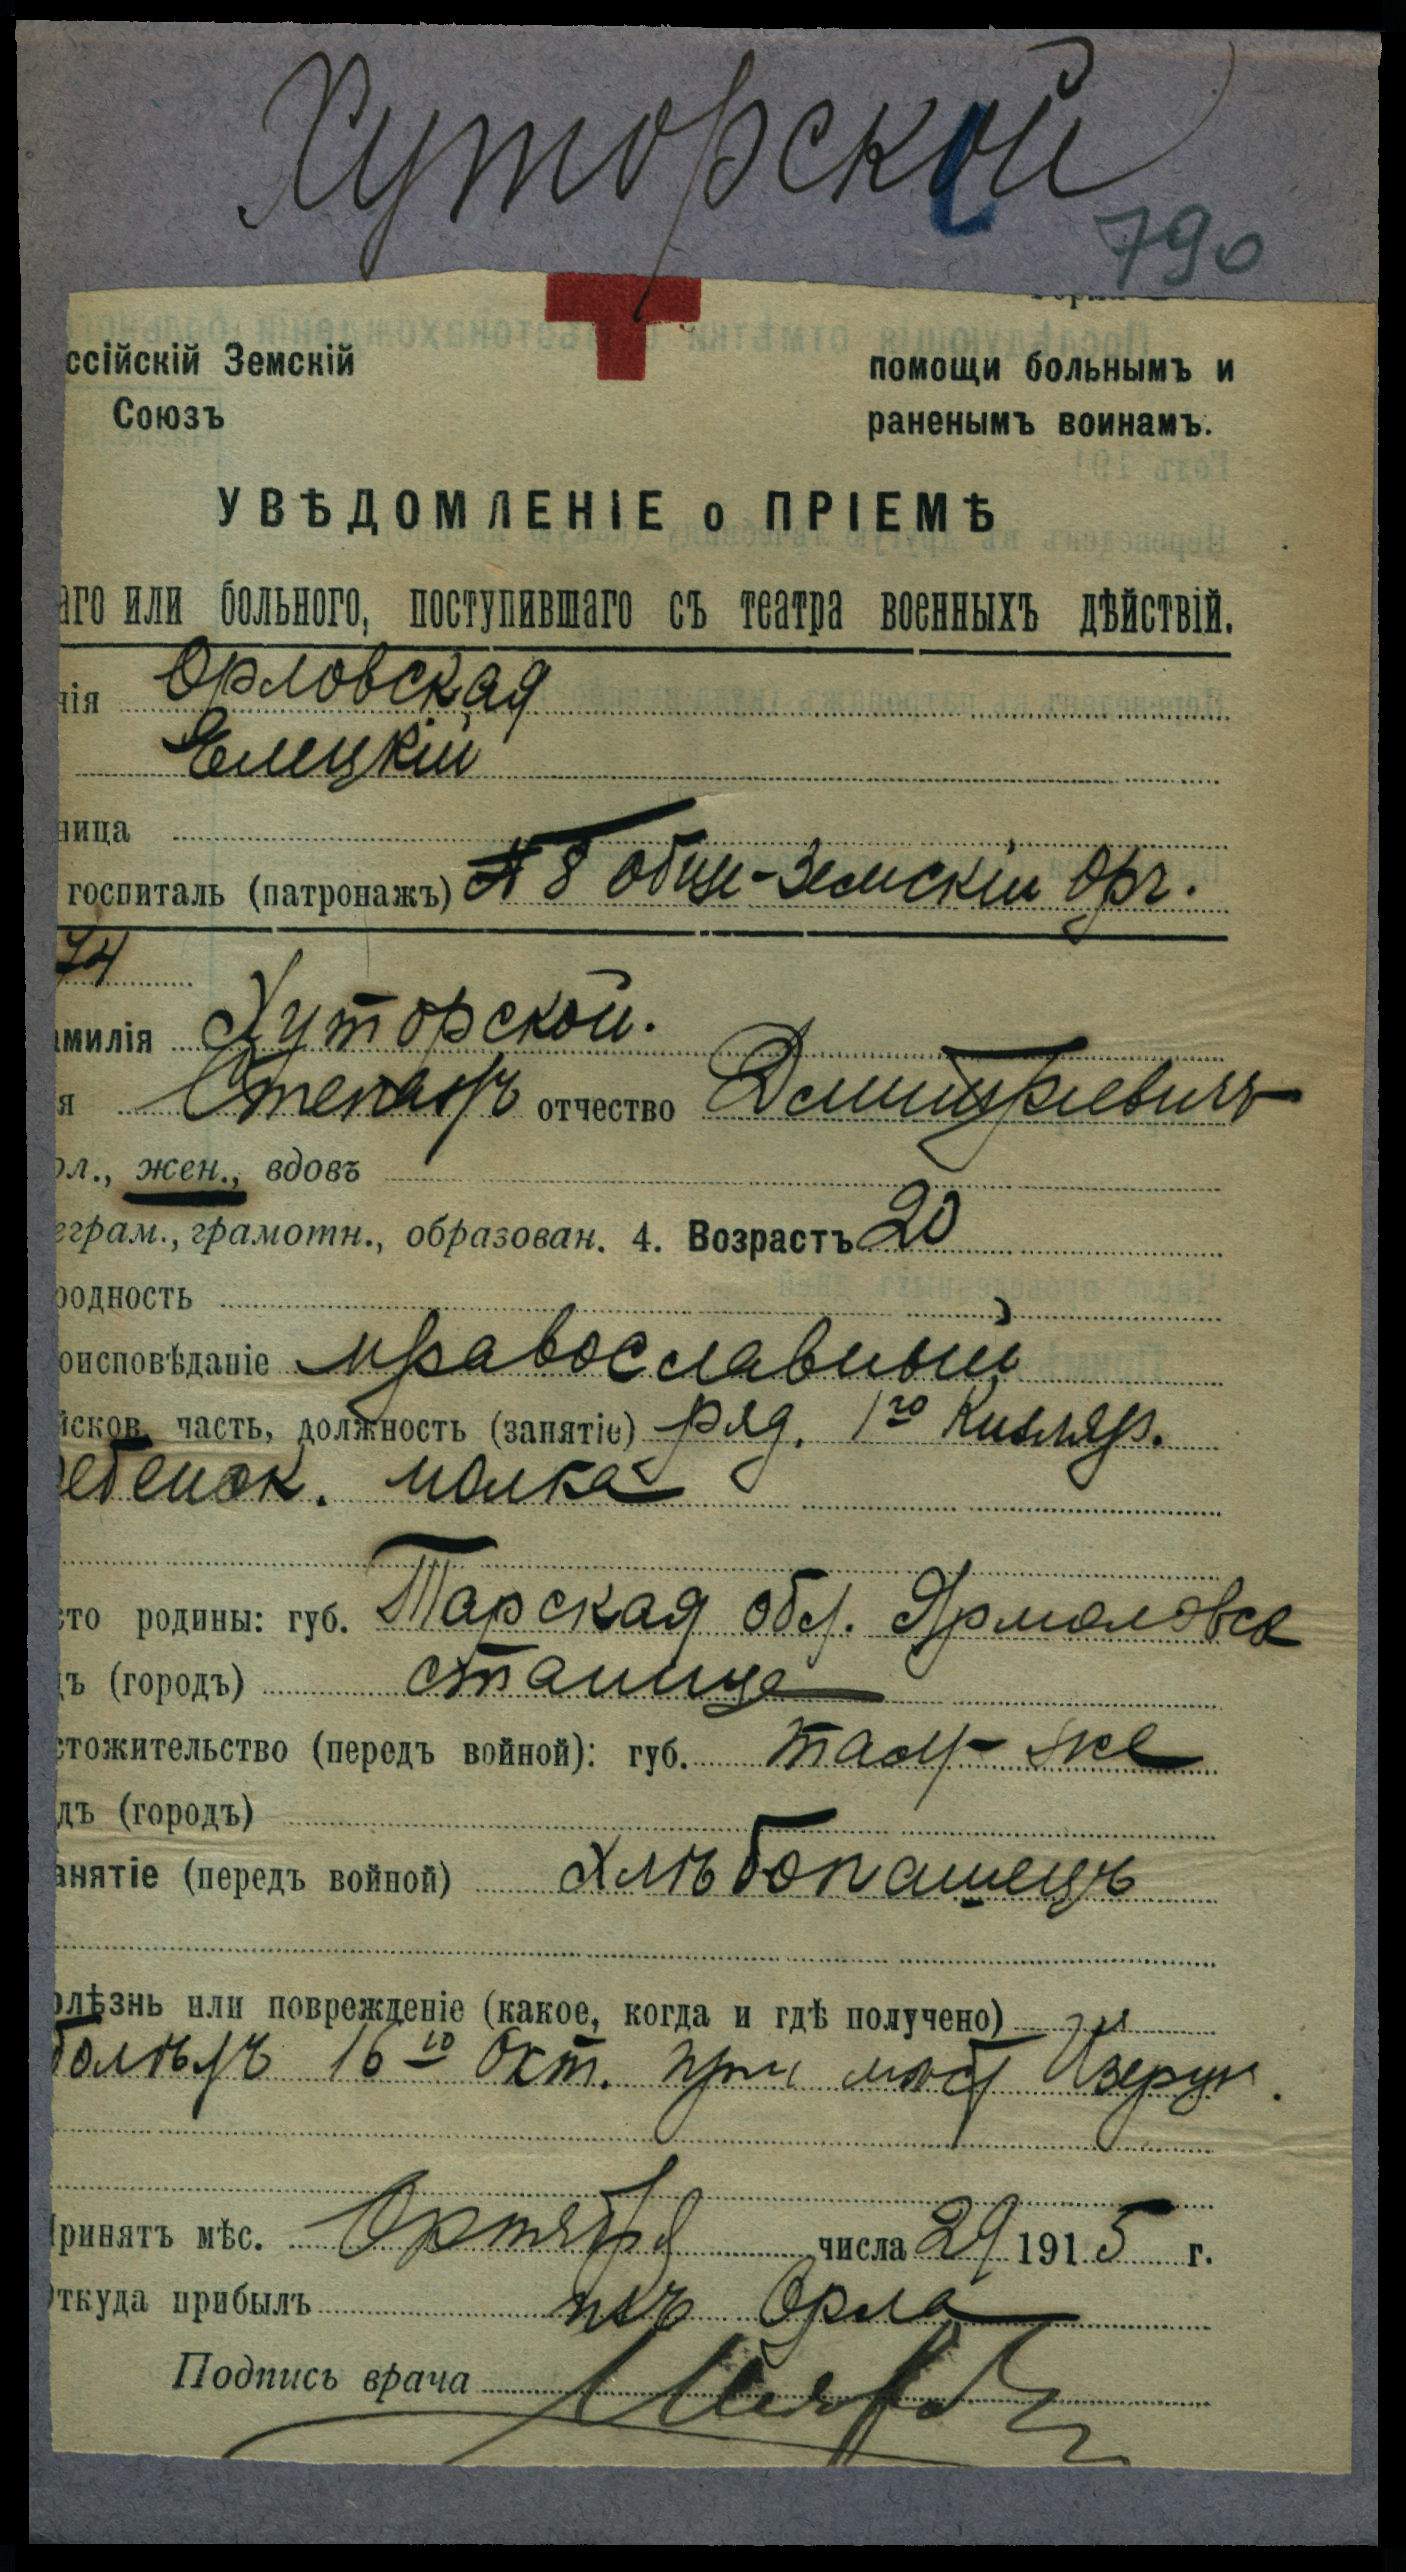 Хуторской
790
ссійскій Земскій
Союзъ
помощи больнымъ и
раненымъ воинамъ.
УВѢДОМЛЕНІЕ о ПРІЕМѢ
аго или больного, поступившаго съ театра военныхъ дѣйствій.
нія Орловская
Елецкій
ница
госпиталь (патронажъ) № 8 обще-земскій орг.
74
амилія Хуторской.
я Степанъ отчество Дмитріевичъ
ол., жен., вдовъ
еграм., грамотн., образован. 4. Возрастъ 20
родность
оисповѣданіе православный
йсков. часть, должность (занятіе) ряд. 1го Кизляр.
ебенск. полка
сто родины: губ. Тарская обл. Ярмоловск
дъ (городъ) станица
стожительство (передъ войной): губ. тамъ-же
дъ (городъ)
анятіе (передъ войной) хлѣбопашецъ
олѣзнь или поврежденіе (какое, когда и гдѣ получено)
болѣлъ 16го Окт. при
Принятъ мѣс. Октября числа 29 1915 г.
Откуда прибылъ изъ Орла
Подпись врача